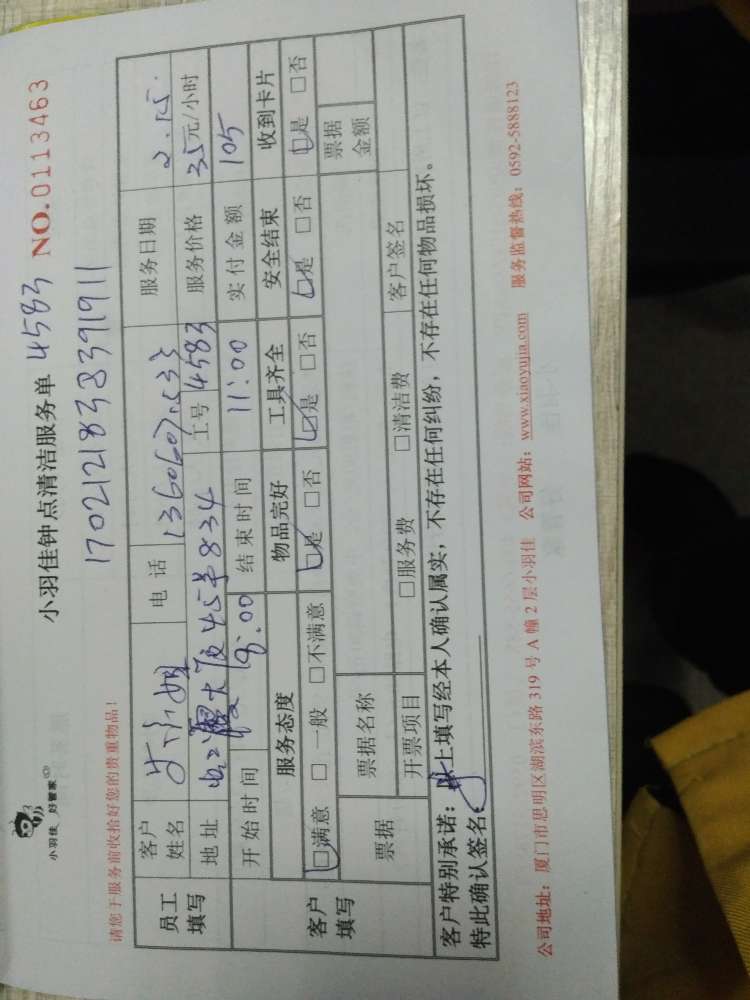 小羽佳 好管家
小羽佳钟点清洁服务单 4583 NO.0113463
17021218383391911
请您于服务前收拾好您的贵重物品!
员工填写 客户姓名 小姐 电话 服务日期 2.15.
地址 大厦45#834 工号 4583 服务价格 35元/小时
开始时间 8:00 结束时间 11:00 实付金额 105
客户填写 服务态度 物品完好 工具齐全 安全结束 收到卡片
□满意 □一般 □不满意 □是 □否 □是 □否 □是 □否 □是 □否
票据 票据名称 票据金额
开票项目 □服务费 □清洁费 客户签名
客户特别承诺:以上填写经本人确认属实,不存在任何纠纷,不存在任何物品损坏。
特此确认签名:
公司地址:厦门市思明区湖滨东路 319 号 A 幢 2 层小羽佳 公司网站:www.xiaoyujia.com 服务监督热线:0592-5888123